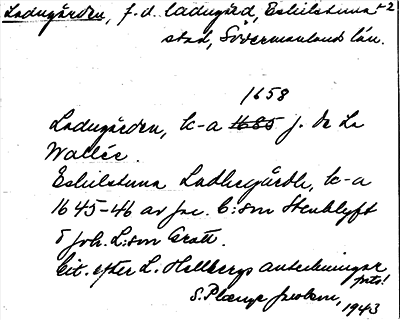 Ladugården, f.d. ladugård, Eskilstuna +2
stad, Södermanlands län.
1658
Ladugården, k-a 1685 J. De La
Wallée.
Eskilstuna Ladhegårdh, k-a
1645-46 av Jac. C:son Stenklyft
o Joh. L:son Grott.
Cit. efter L. Hellbergs anteckningar
S. Plænge Jacobson,
1943